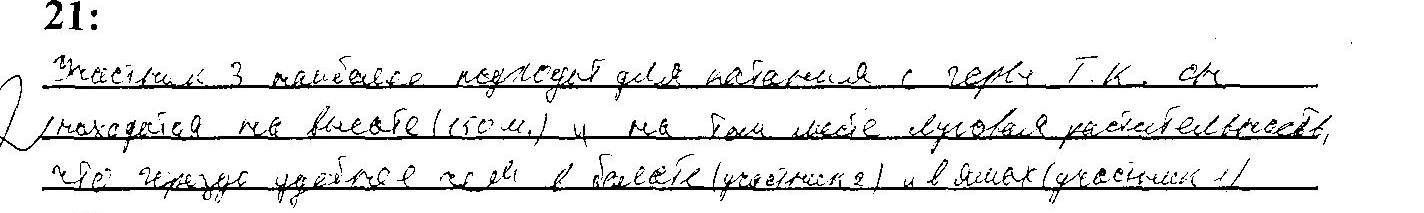 21:
Участник 3 наиболее подходит для катания с горы т.к. он
находится на высоте (150 м.) и на том месте луговая растительность,
что гораздо удобнее чем в болоте (участник 2) и в ямах (участник 1)